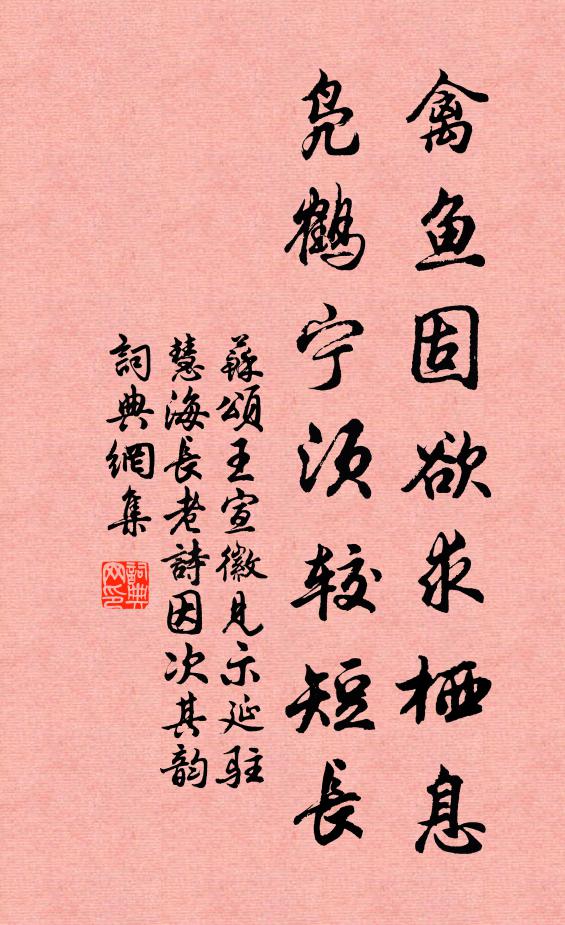 禽鱼固欲求栖息
凫鹤宁须较短長
蘇頌王宣徽見示延駐
慧海長老詩因次其韵
詞典網集
詞典
网印